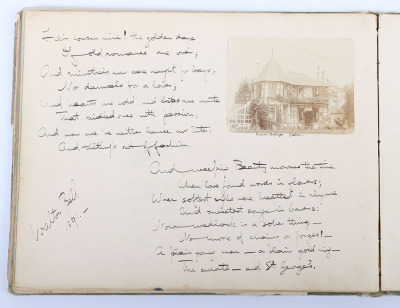 Fair cousin mine! the golden days
Of old romance are over;
And minstrels now care naught for bays,
Nor damsels for a lover;
And hearts are cold and lips are mute
That kindled once with passion,
And now we've neither lance nor lute,
And tilting's out of fashion.
And weeping Beauty mourns the time
When love found words in flowers;
When softest sighs were breathed in rhyme
And sweetest songs in bowers;
Now wedlock is a sober thing—
No more of chains or forges!—
A plain young man — a plain gold ring—
The curate — and St. George's.